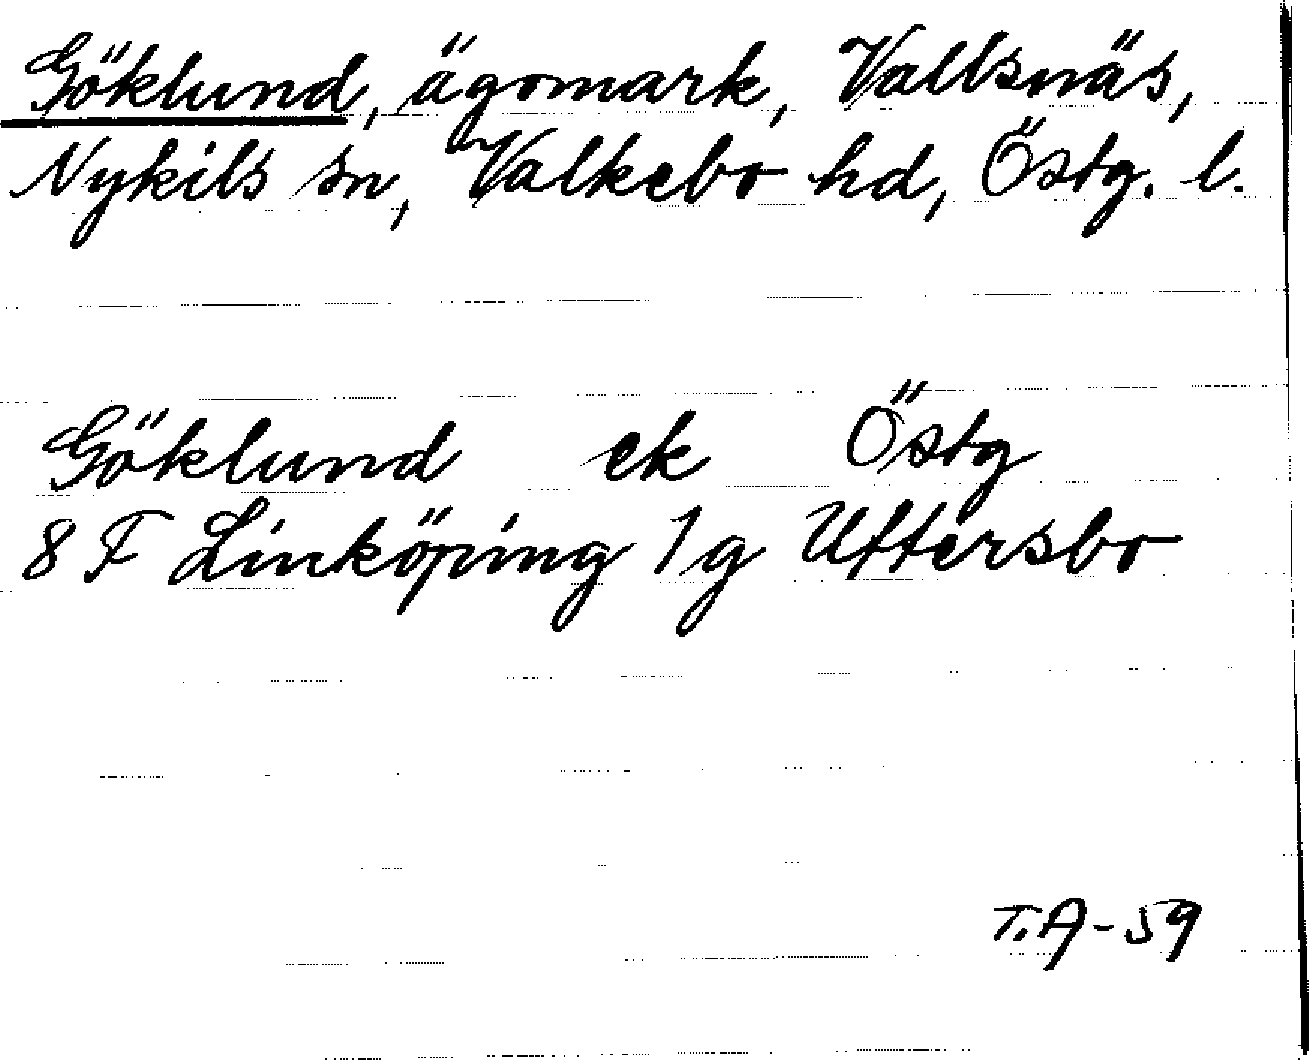 Göklund, ägomark, Vallsnäs,
Nykils sn, Valkebo hd, Östg. l.
Göklund ek Östg
8 F Linköping 1 g Uftersbo
T.A-59